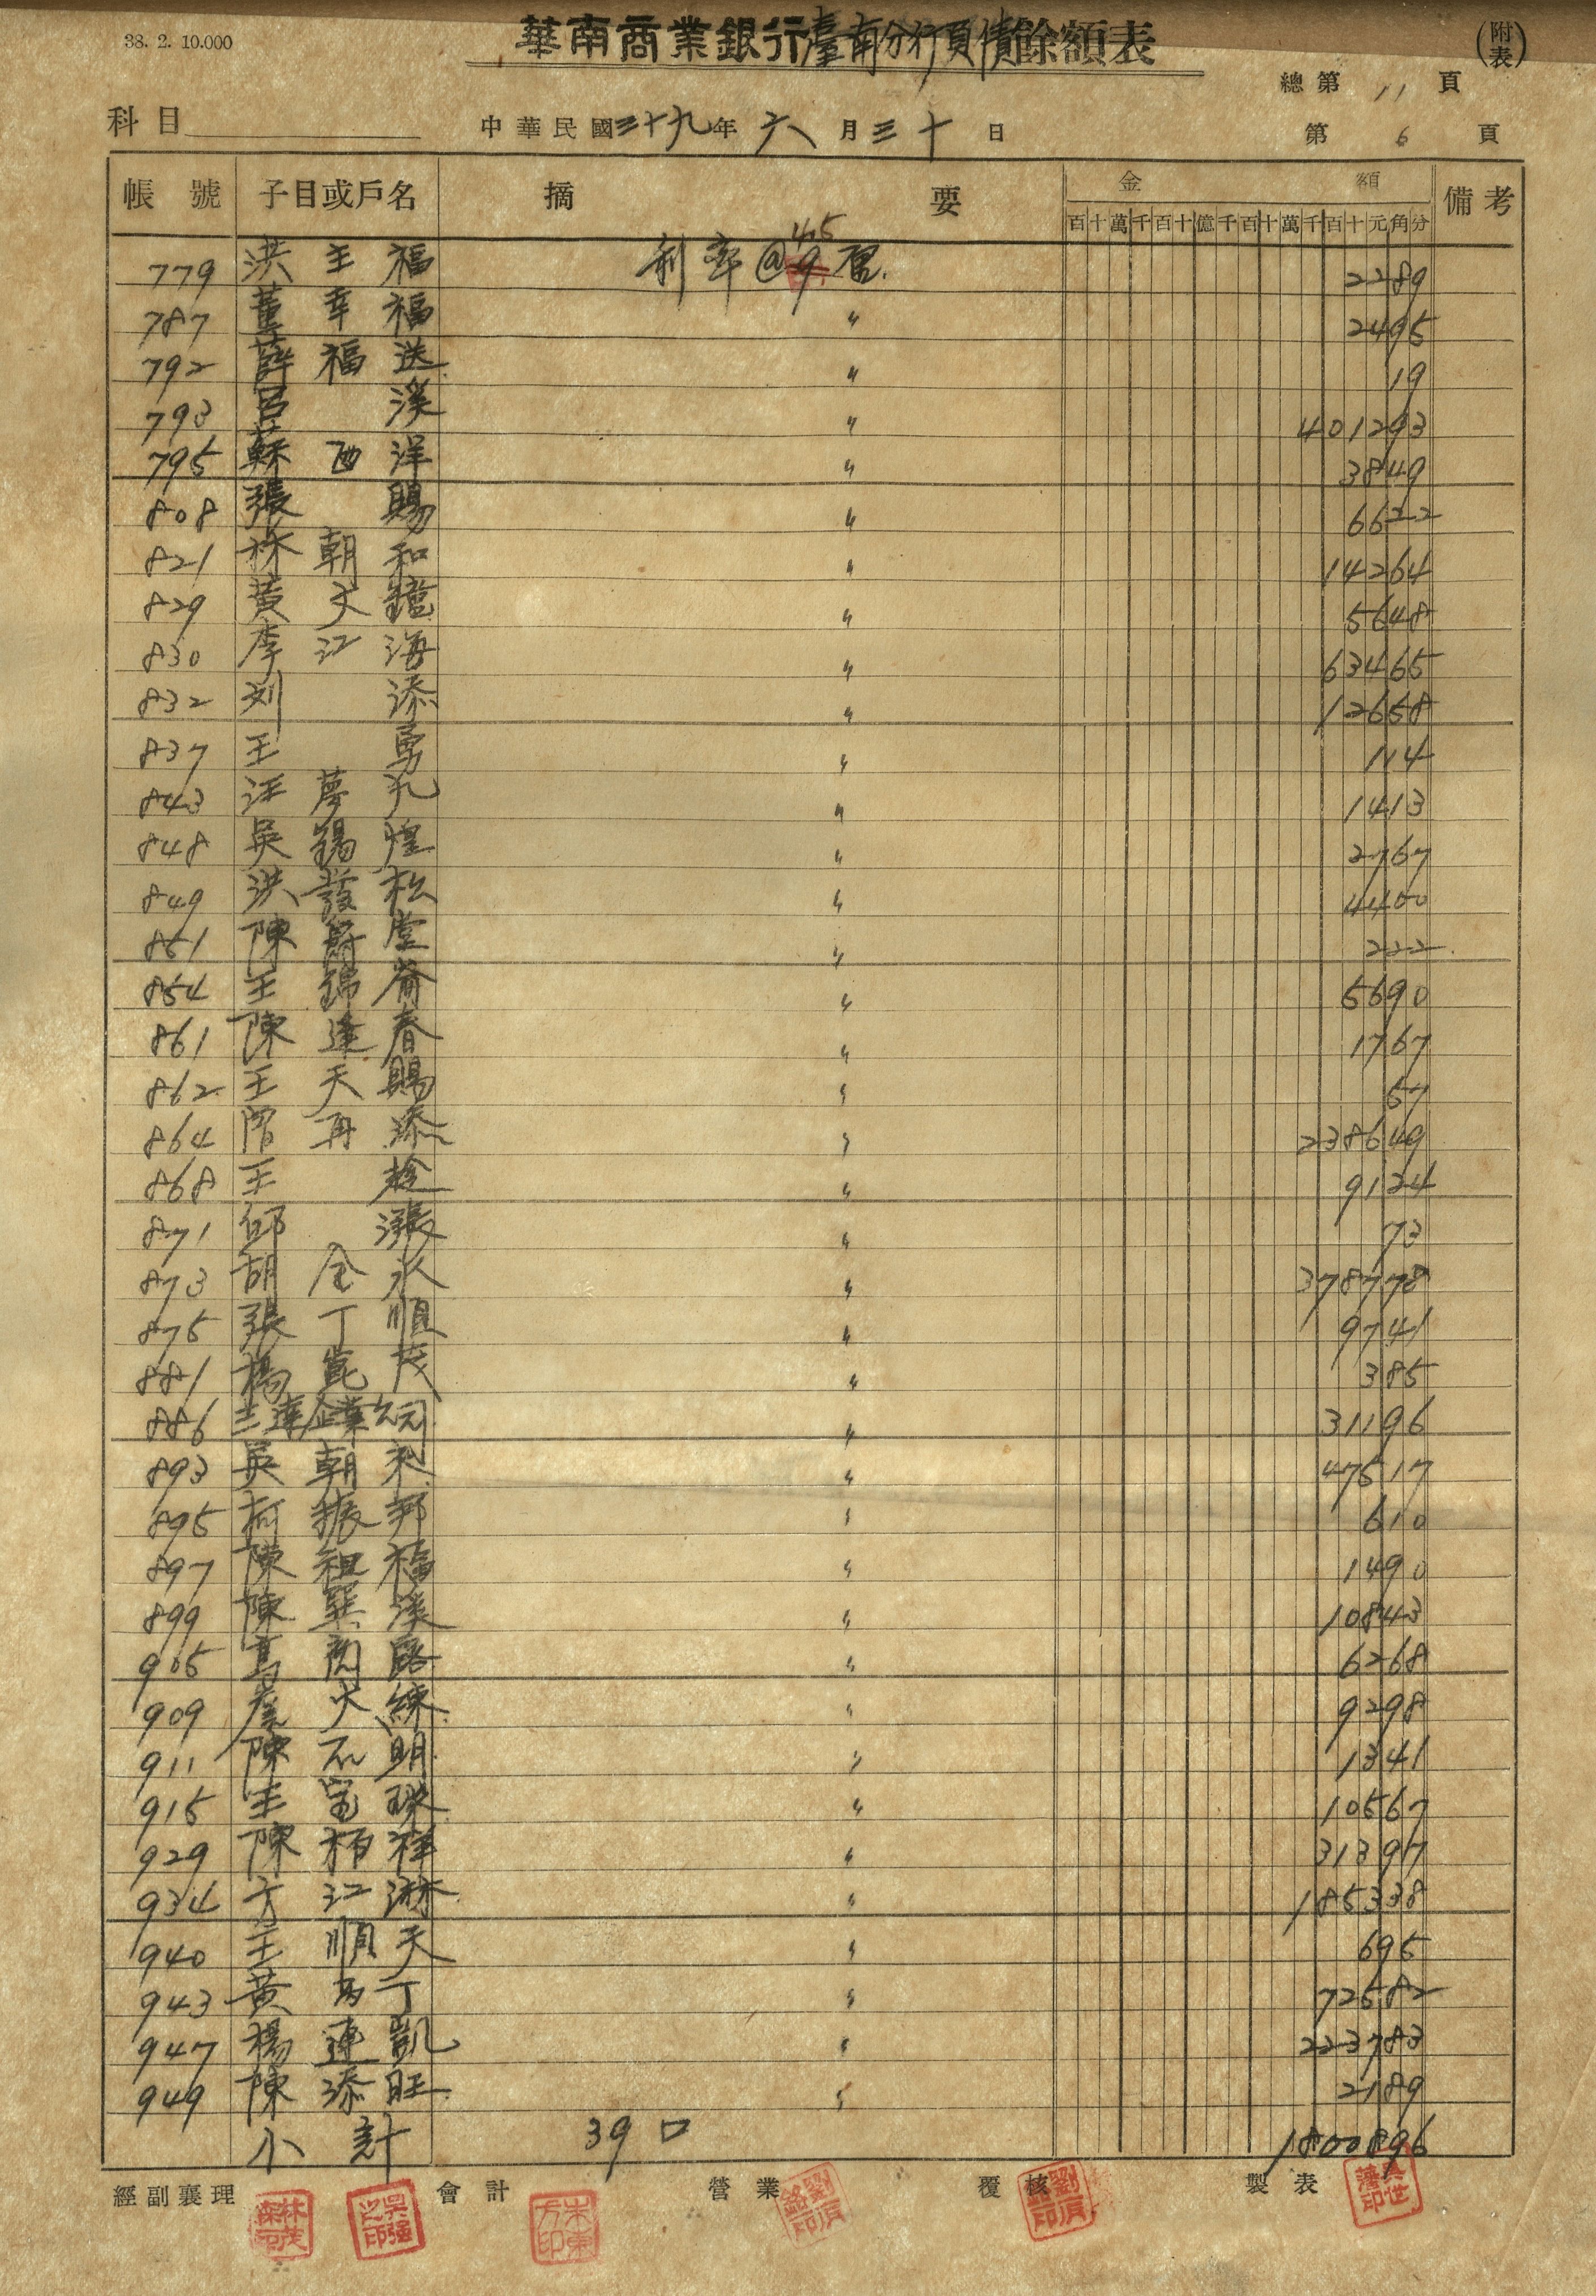 38. 2. 10.000
華南商業銀行臺南分行負債餘額表
(附表)
總第 11 頁
科目 中華民國三十九年 六 月 三十 日 第 6 頁
帳號 子目或戶名 摘要 金額 備考
百十萬千百十億千百十萬千百十元角分
779 洪主福 利率@4.5厘. 2289
787 董幸福 〃 2495
792 薛福送 〃 19
793 呂溪 〃 401293
795 蘇西洋 〃 3849
808 張賜 〃 6622
821 林朝和 〃 14264
829 黃天鐙 〃 5648
830 李江海 〃 63465
832 刘添 〃 12658
837 王勇 〃 114
843 汪夢九 〃 1413
848 吳錫煌 〃 2767
849 洪發松 〃 4400
851 陳爵堂 〃 222
854 王錦崙 〃 5690
861 陳逢春 〃 1767
862 王天賜 〃 57
864 再添 〃 238649
868 王趁 〃 9124
871 邱漲 〃 73
873 胡全永 〃 378778
875 張丁順 〃 9741
881 楊崑茂 〃 385
886 三連企業公司 〃 31196
893 吳朝利 〃 47517
895 柯振邦 〃 610
897 陳祖福 〃 1490
899 陳巽溪 〃 10843
905 路 〃 6268
909 詹火練 〃 9298
911 陳石明 〃 1341
915 王宝珠 〃 10567
929 陳柏祥 〃 31397
934 方江淋 〃 185338
940 王順天 〃 695
943 黃馬丁 〃 72582
947 楊連凱 〃 223783
949 陳添旺 〃 2189
小計 39口 1800896
經副襄理 會計 營業 覆核 製表